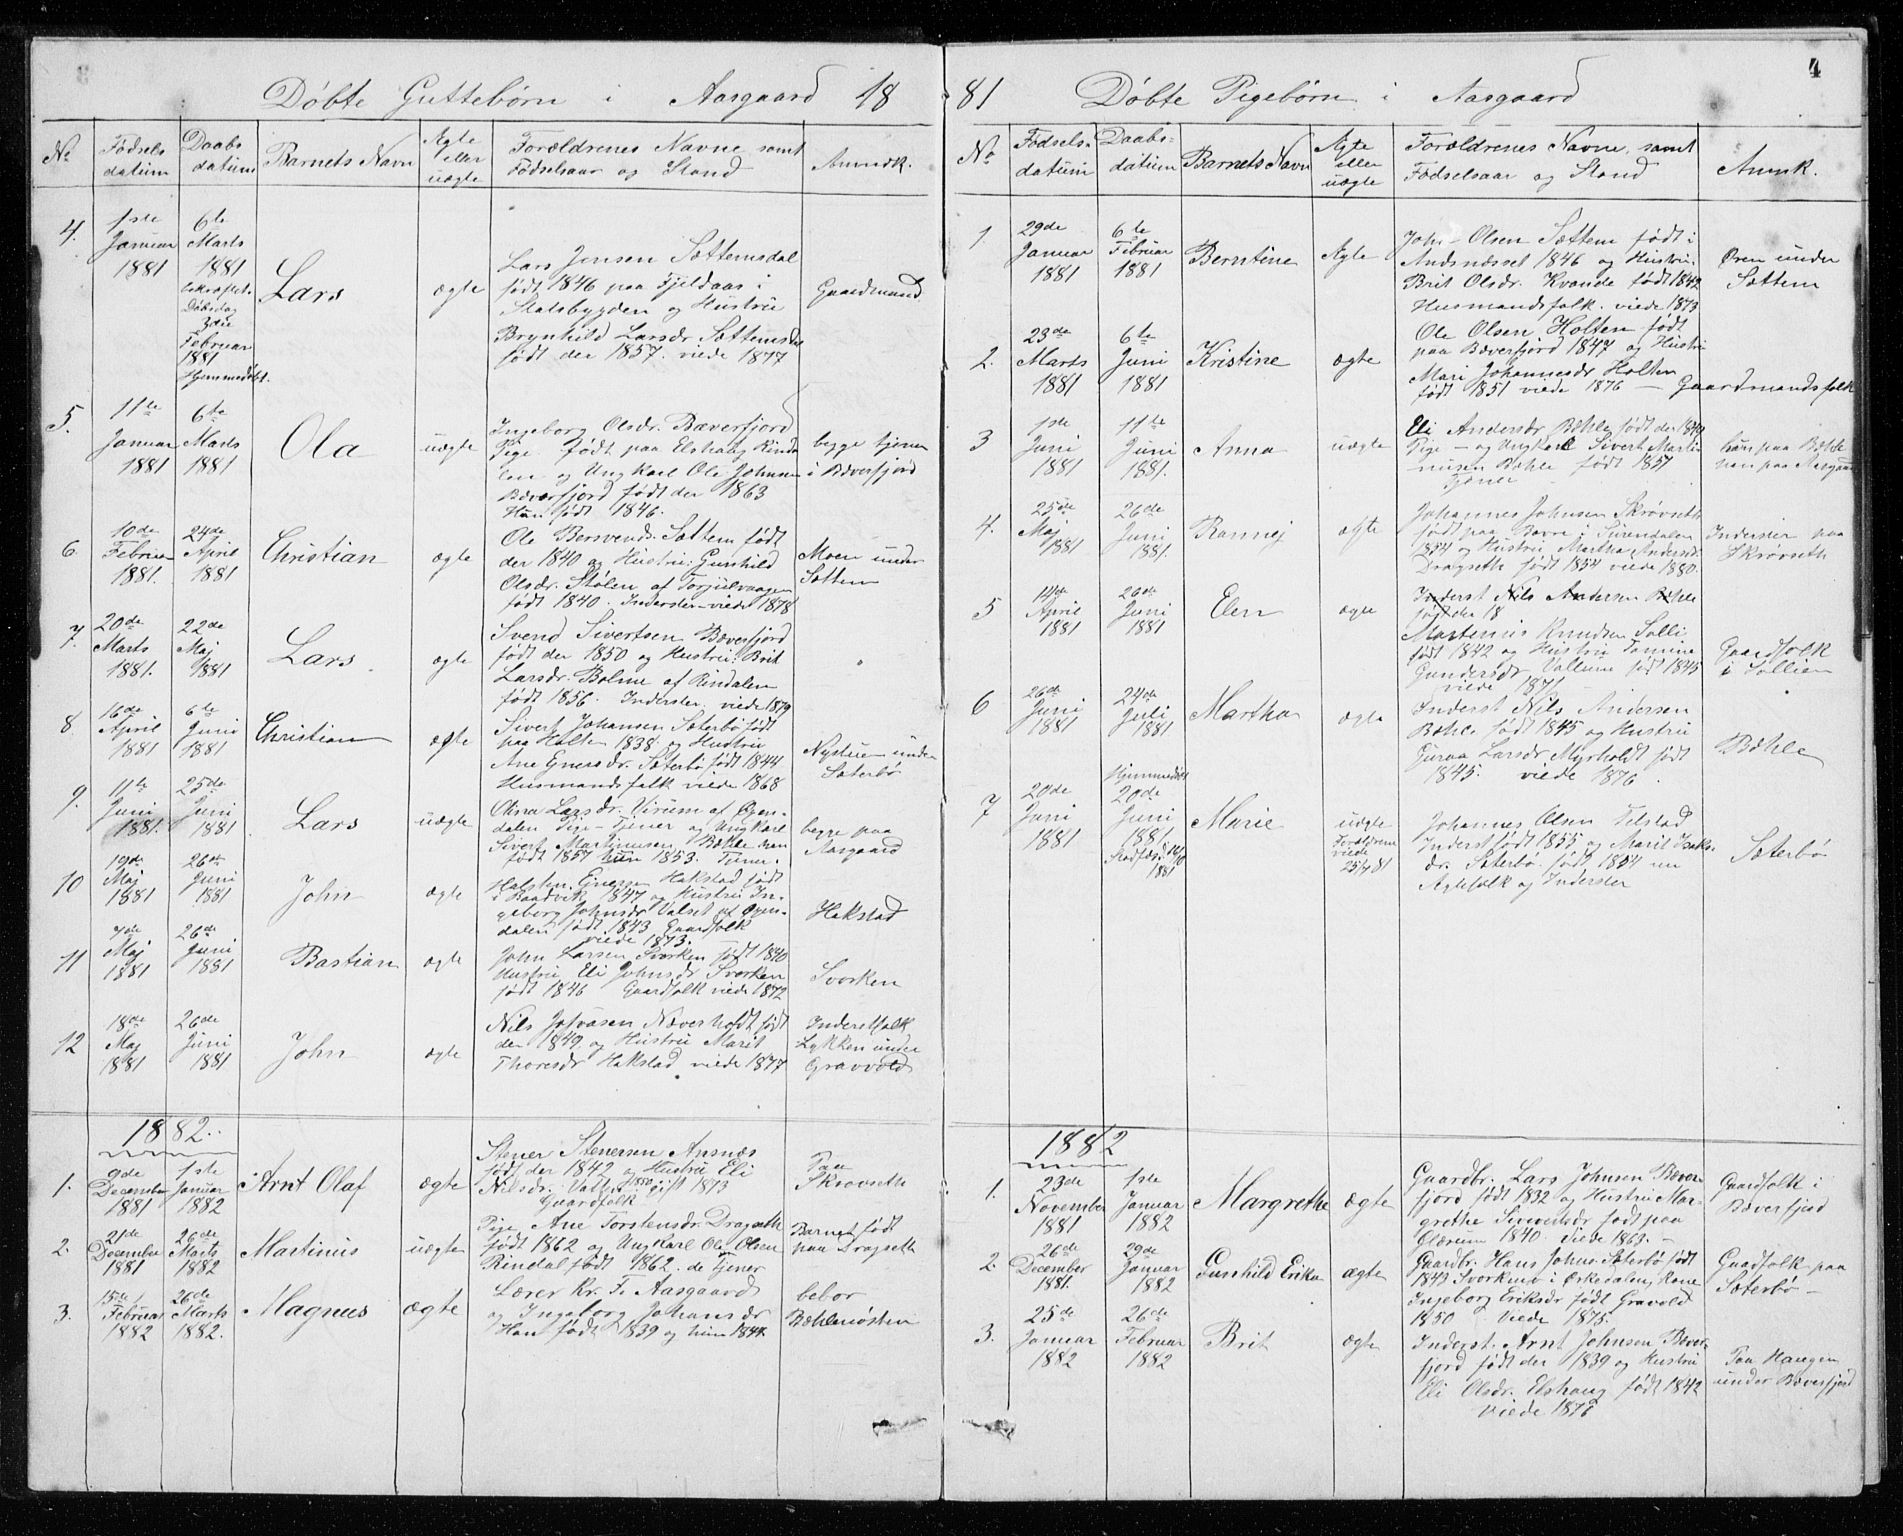 Døbte Guttebørn i Aasgaard 18
No
Fødsels
datum
Daabs
datum
Barnets Navn
Ægte
eller
uægte
Forældrenes Navne samt
Fødselsaar og Stand
Anmærk.
4.
1ste
Januar
1881
6te
Marts
1881
Døbsdag
Februar
1881
Hjemmedøbt.
Lars
ægte
Lars Jonsen Sættemsdal
født 1846 paa Fjeldaas i
Statsbygden og Hustru
Brynhild Larsdr Sættemsdal
født der 1857. viede 1877
Gaardmand
5.
11te
Januar
1881
6te
Marts
1881
Ola
uægte
Ingeborg Olsdr. Bæverfjord
Pige født paa Elshaug Rinda
len og Ungkarl Ole Johnsen
Bæverfjord født der 1863
Hun født 1846.
begge tjener
i Bæverfjord
6.
10de
Februar
1881.
24de
April
1881
Christian
ægte
Ole Bersvends. Sættem født
der 1840 og Hustru: Gunhild
Olsdr. Stølen af Torjulvaagen
født 1840. Inderster viede 1878
Moen under
Sættem
7.
20de
Marts
1881.
22de
Maj
1881
Lars
ægte
Svend Sivertsen Bæverfjord
født der 1850 og Hustru: Brit
Larsdr. Bolme af Rindalen
født 1856. Inderster viede 1879
8.
16de
April
1881
6te
Juni
1881
Christian
ægte
Sivert Johansen Sæterbø født
paa Holte 1838 og Hustru
Ane Einersdr. Sæterbø født 1844
Husmandsfolk viede 1868
Nystuen under
Sæterbø
9.
11te
Juni
1881.
25de
Juni
1881
Lars
uægte
Olina Larsdr. Virum af Øxen-
dalen Pige - Tjener og Ungkarl
Sivert Martinusen Bæhle han
født 1857 hun 1853. Tjener
begge paa
Aasgaard
10
19de
Maj
1881
26de
Juni
1881
John
ægte
Halsten Einersen Hakstad født
i Baadvik 1847 og Hustru In-
geborg Johnsdr Valset af Øxen-
dalen født 1843 Gaardfolk
viede 1873.
Hakstad
11
7de
Maj
1881
26de
Juni
1881
Bastian
ægte
John Larsen Svorken født 1840
Hustru Eli Johnsdr Svorken
født 1846 Gaardfolk viede 1872
Svorken
12
18de
Maj
1881
26de
Juni
1881
John
ægte
Nils Johnsen Næverholdt født
den 1849. og Hustru Marit
Thoresdr Hakstad viede 1877
Inderstfolk
Lykken under
Gravvold
1882.
1.
9de
December
1881
1ste
Januar
1882
Arnt Olaf
ægte
Stener Stenersen Aasnæs
født der 1842 og Hustru Eli
Nilsdr. 1850 gift 1873
Gaardfolk
Paa
Skrøvseth
2.
21de
December
1881
26de
Marts
1882
Martinus
uægte
Pige Ane Torstensdr. Dragseth
født 1862 og Ungkarl Ole Olsen
Rindal født 1862. de tjener
Barnet født
paa Dragseth
3.
15de
Februar
1882
26de
Marts
1882.
Magnus
ægte
Lærer Kr. Fr. Aasgaard
og Ingeborg Johansdr
Han født 1839 og hun 1844.
bebor
Bæhlenøsten
81 Døbte Pigebørn i Aasgaard
4
No
Fødsels-
datum
Daabs-
datum
Barnets Navn
Ægte
eller
uægte
Forældrenes Navne samt
Fødselsaar og Stand
Anmk.
1
29de
Januar
1881
6te
Februar
1881
Berntine
Ægte
John Olsen Sættem født i
Andsnæsset 1846 og Hustru.
Brit Olsdr. Kvande født 1842
Husmandsfolk. viede 1873
Øren under
Sættem
2.
23de
Marts
1881
6te
Juni
1881
Kristine
ægte
Ole Olsen Holten født
paa Bæverfjord 1847 og Hustru
Mari Johannesdr Holten
født 1851 viede 1876 — Gaardmandsfolk
3
1ste
Juni
1881
11te
Juni
1881.
Anna
uægte
Eli Andersdr Bæhle født der 1849
Pige - og Ungkarl Sivert Marti-
nusen Bæhle født 1857
Tjener
hun paa Bæhle
han paa Aasgaard
4.
25de
Maj
1881
26de
Juni
1881.
Rannej
ægte
Johannes Johnsen Skrøvseth
født paa Bævre i Surendalen
1854 og Hustru Martha Andersdr.
Dragseth født 1854 viede 1880.
Inderster paa
Skrøvseth
5
14de
April
1881
26de
Juni
1881
Elen
ægte
Inderst Nils Andersen Bæhle
født der 18
Martinus Knudsen Solli
født 1842 og Hustru
Gundersdr Vattum født 1845
viede 1871
Gaardfolk
i Sollien
6
26de
Juni
1881
24de
Juli
1881
Martha
ægte
Inderst Nils Andersen
Bæhle født 1845 og Hustru
Guraa Larsdr. Myrholdt født
1845. viede 1876.
Bæhle
7
20de
Juni
1881
Hjemmedøbt
20de
Juni
1881
Stadfæst
1881
Marie
uægte
Forældrene
viede
25/7 81
Johannes Olsen Telstad
Inderst født 1855 og Marit Isaks-
dr. Sæterbø. født 1854 nu
Ægtefolk og Inderster
Sæterbø
1882
1.
23de
November
1881
1ste
Januar
1882
Margrethe
ægte
Gaardbr. Lars Johnsen Bæver-
fjord født 1832 og Hustru Mar-
grethe Sivertsdr født paa
Glærum 1840. Viede 1863. —
Gaardfolk i
Bæverfjord
2.
26de
December
1881.
29de
Januar
1882
Gunhild Erika
ægte
Gaardbr. Hans Johns. Sæterbø født
1843 Svorkmo i Ørkedalen, Kone
Ingeborg Eriksdr født Gravold
1850. Viede 1875.
Gaardfolk paa
Sæterbø —
3.
25de
Januar
1882
26de
Februar
1882
Brit
ægte
Inderst. Arnt Johnsen Bæver-
fjord født der 1839 og Hustru
Eli Olsdr. Elshaug født 1842
viede 1876
Paa Haugen
under Bæverfjord